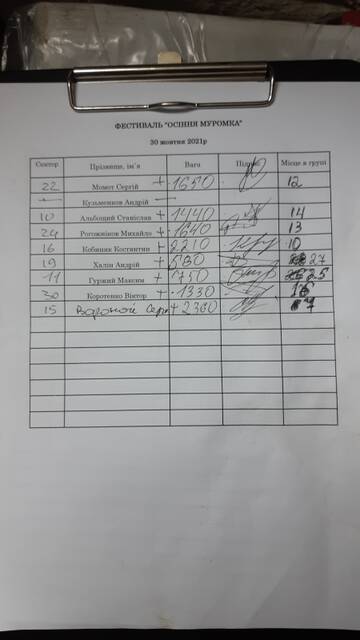 ФЕСТИВАЛЬ "ОСІННЯ МУРОМКА"
30 жовтня 2021р
Сектор Прізвище, ім'я Вага Підпис Місце в групі
22 Момот Сергій + 1650 12
— Кузьменков Андрій —
10 Альбощий Станіслав + 1440 14
24 Рогожніков Михайло + 1640 13
16 Кобиняк Костянтин + 2210 10
19 Халін Андрій + 580 27
11 Гуржий Максим + 750 25
30 Коротенко Віктор + 1330 16
15 + 2360 7